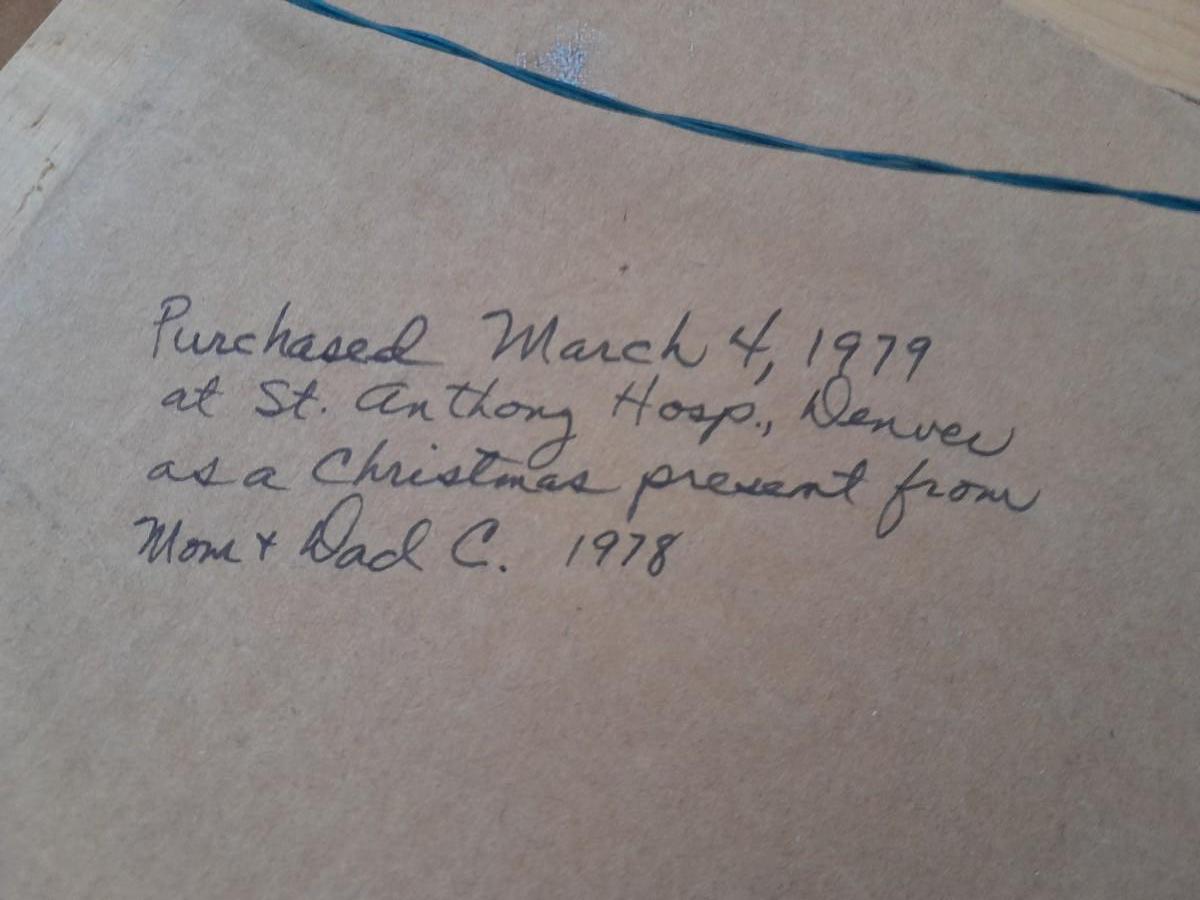 Purchased March 4, 1979
at St. Anthony Hosp., Denver
as a Christmas present from
Mom + Dad C. 1978